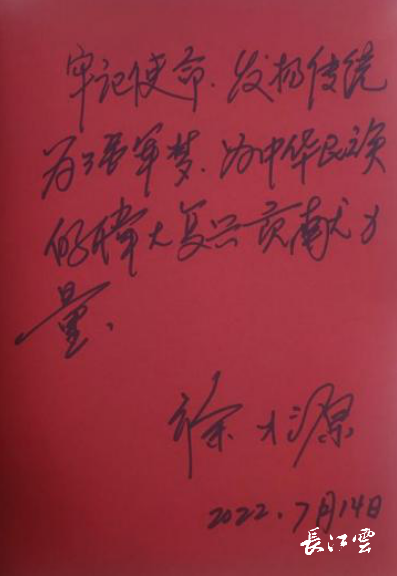 牢记使命.发扬传统
为强军梦.为中华民族
的伟大复兴贡献力
量.
徐才源
2022.7月14日
長江雲